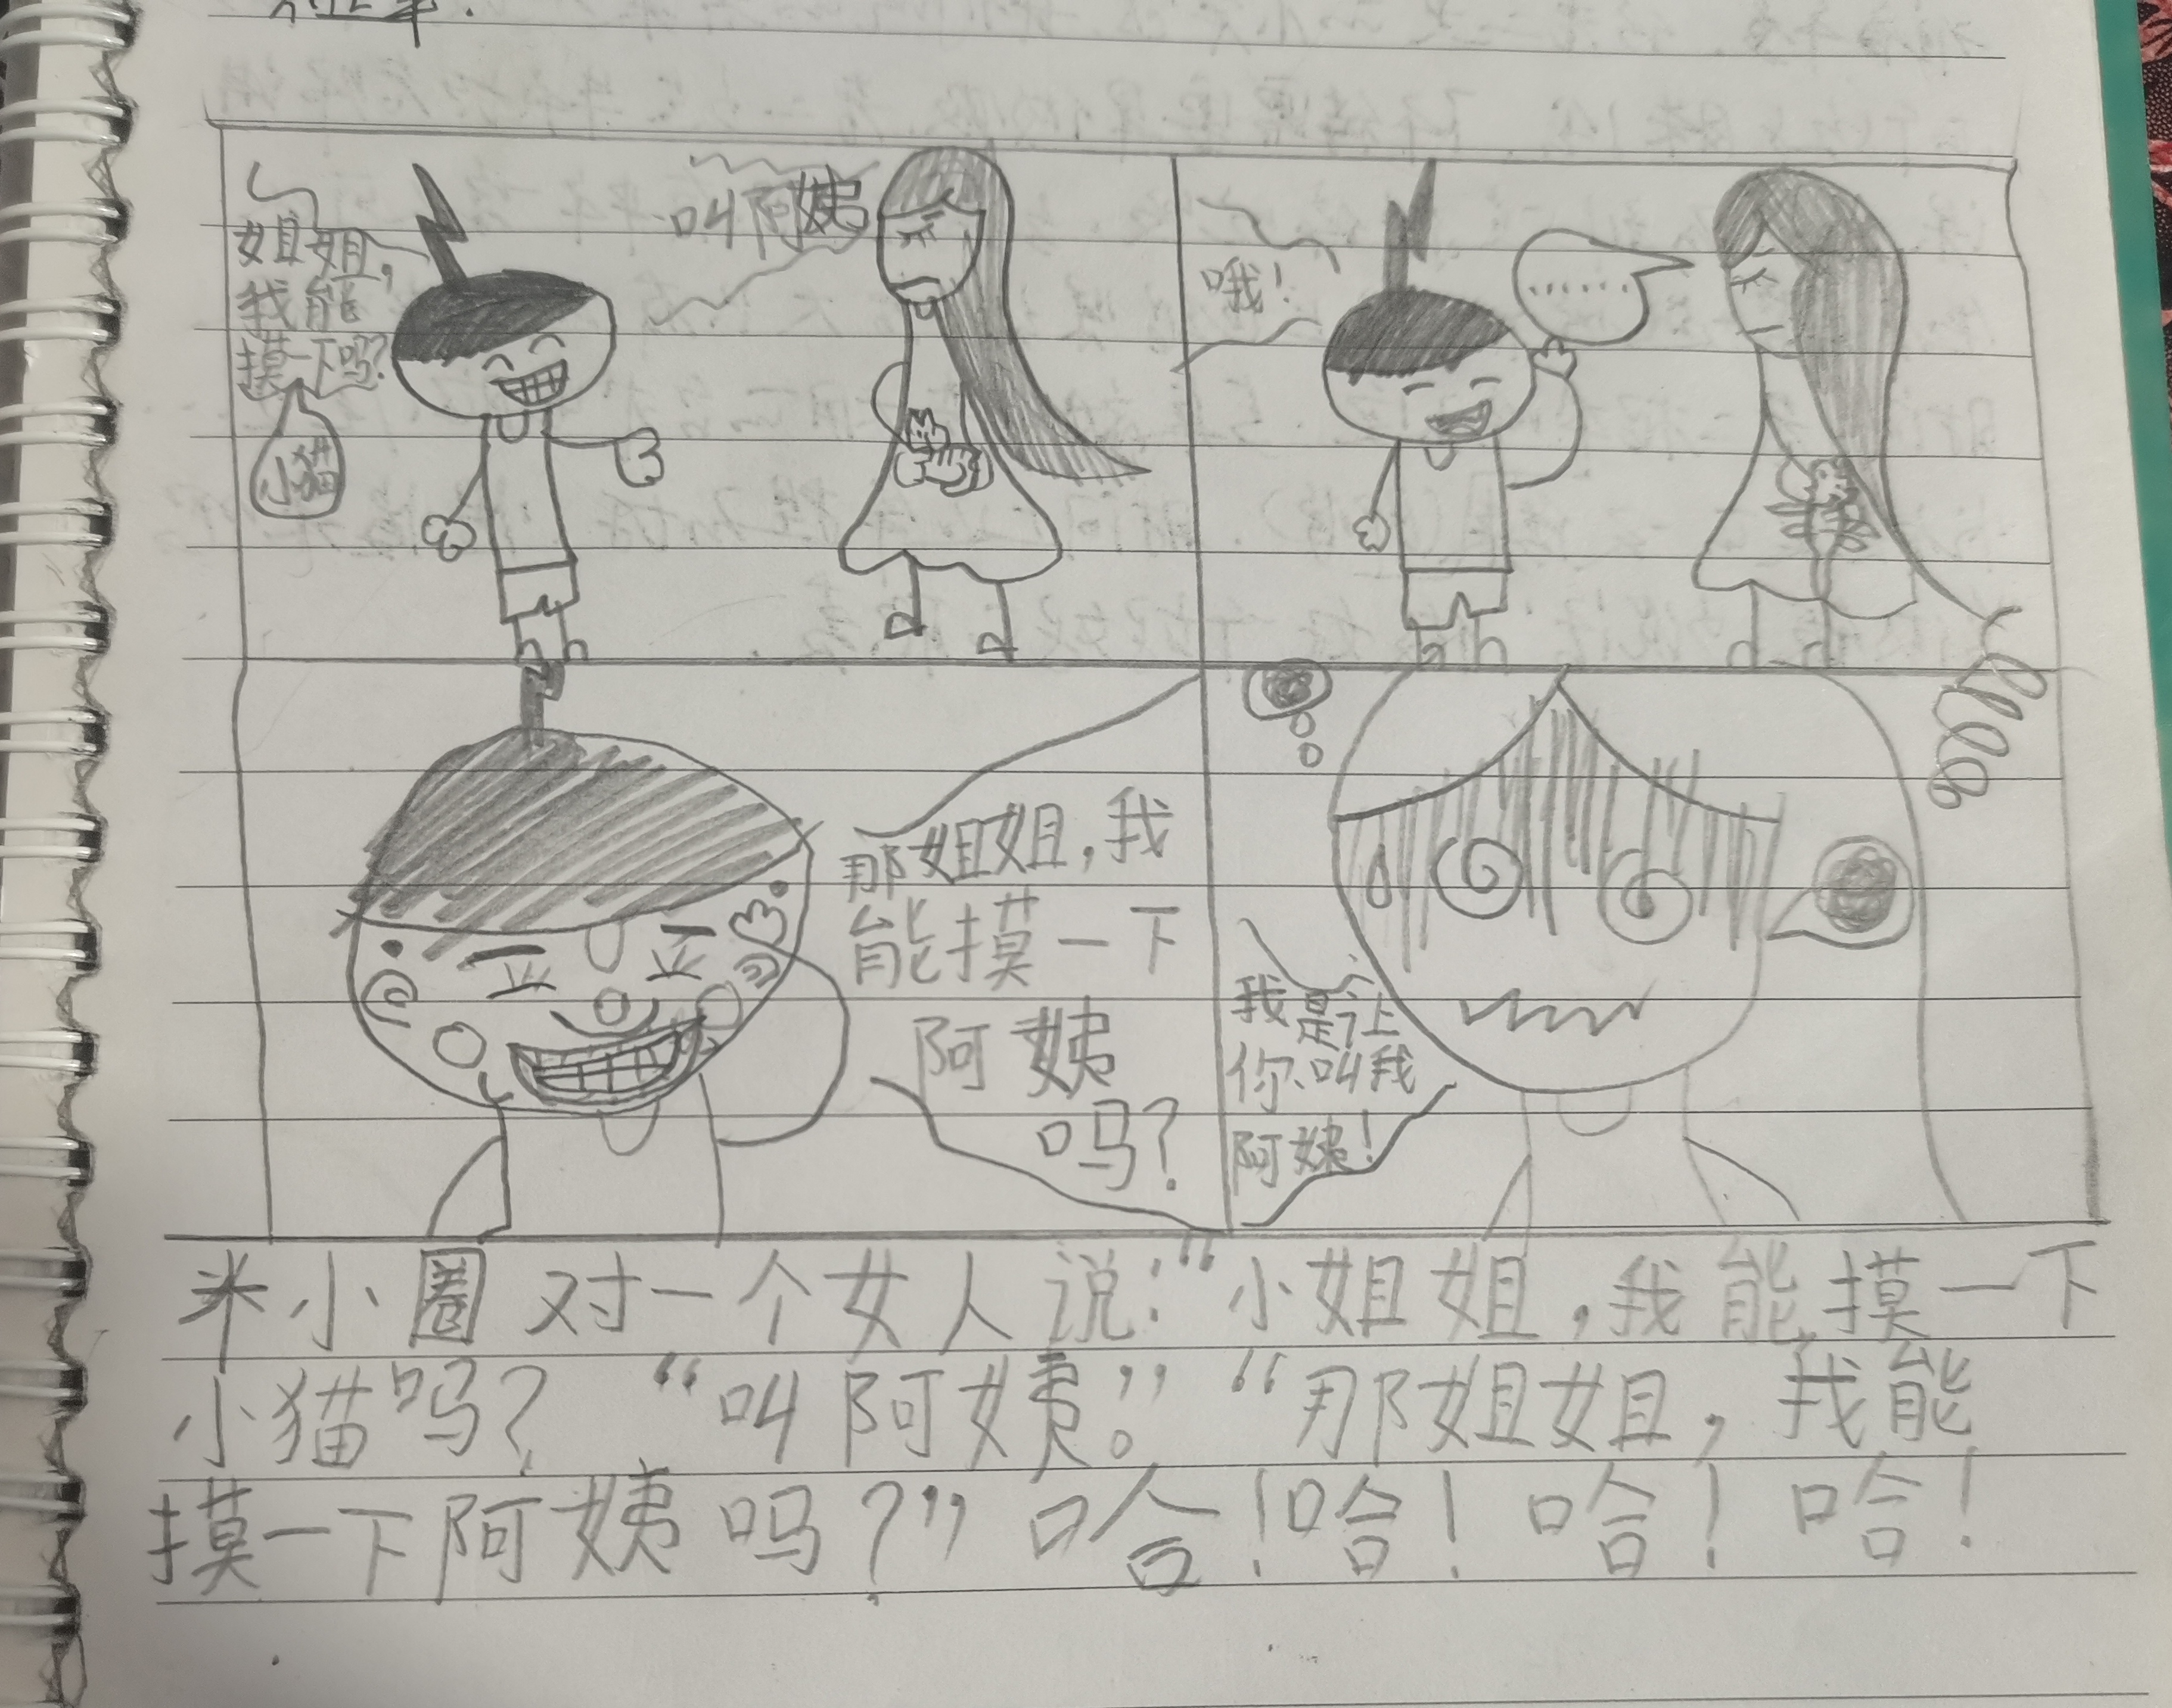 姐姐,
我能
摸一下吗?
小猫
叫阿姨
哦!
......
那姐姐,我
能摸一下
阿姨
吗?
我是让
你叫我
阿姨!
米小圈对一个女人说:“小姐姐,我能摸一下
小猫吗? “叫阿姨。” “那姐姐,我能
摸一下阿姨吗?”哈!哈!哈!哈!